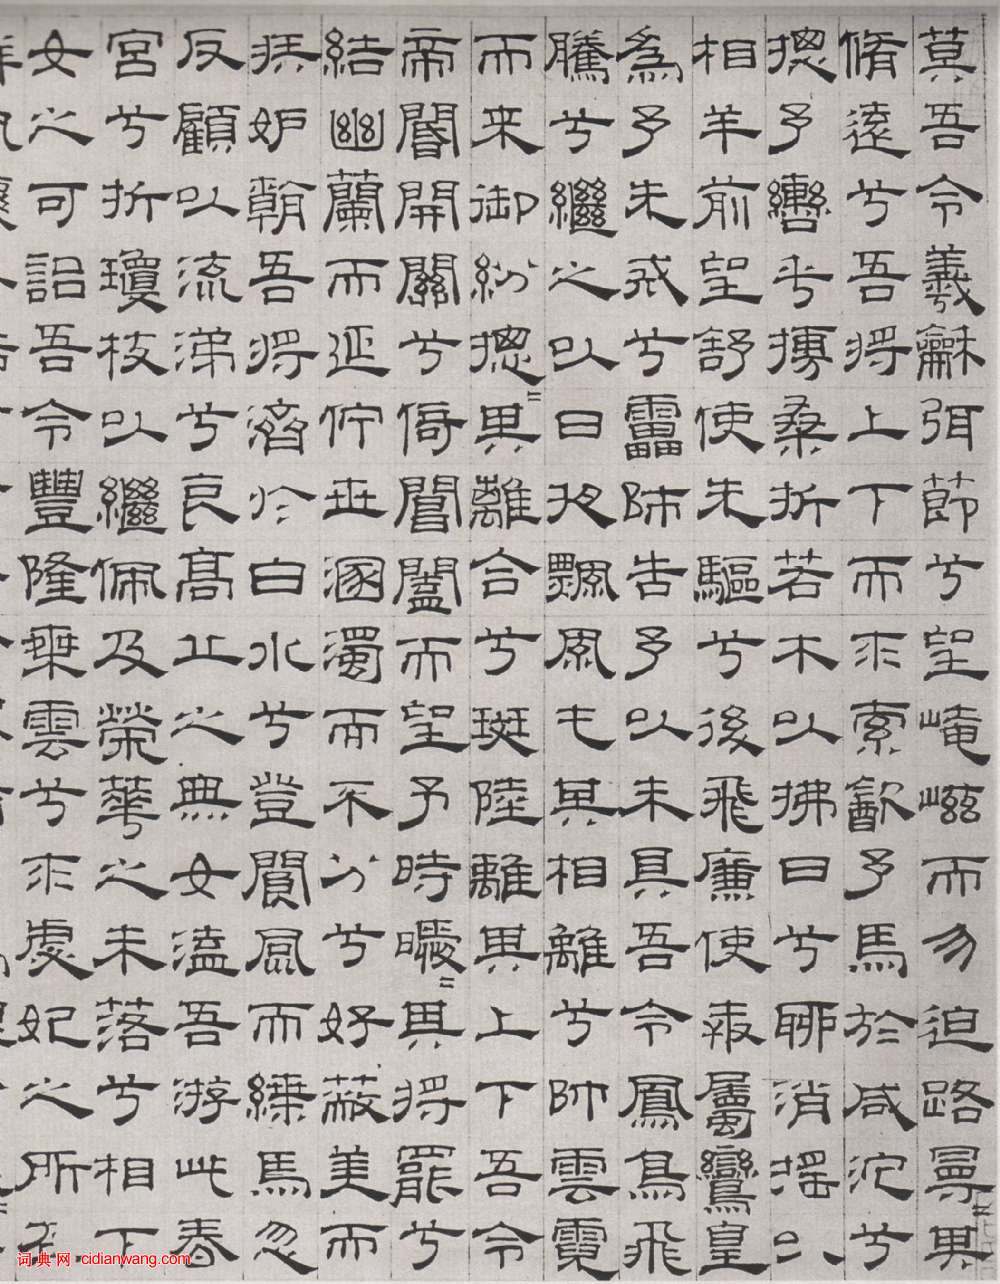 莫吾令羲龢弭節兮望崦嵫而勿迫路曼=其
脩遠兮吾將上下而求索飲予馬於咸沱兮
摠予轡乎榑桑折若木以拂日兮聊消搖以
相羊前望舒使先驅兮後飛廉使奔屬鸞皇
為予先戒兮靁師告予以未具吾令鳳鳥飛
騰兮繼之以日夜飄風屯其相離兮帥雲霓
而来御紛摠=其離合兮斑陸離其上下吾令
帝閽開關兮倚閶闔而望予時曖=其將罷兮
結幽蘭而延佇世溷濁而不分兮好蔽美而
嫉妒朝吾將濟於白水兮登閬風而緤馬忽
反顧以流涕兮哀高丘之無女溘吾游此春
宮兮折瓊枝以繼佩及榮華之未落兮相下
女之可詒吾令豐隆乘雲兮求虙妃之所在
词典网 cidianwang.com